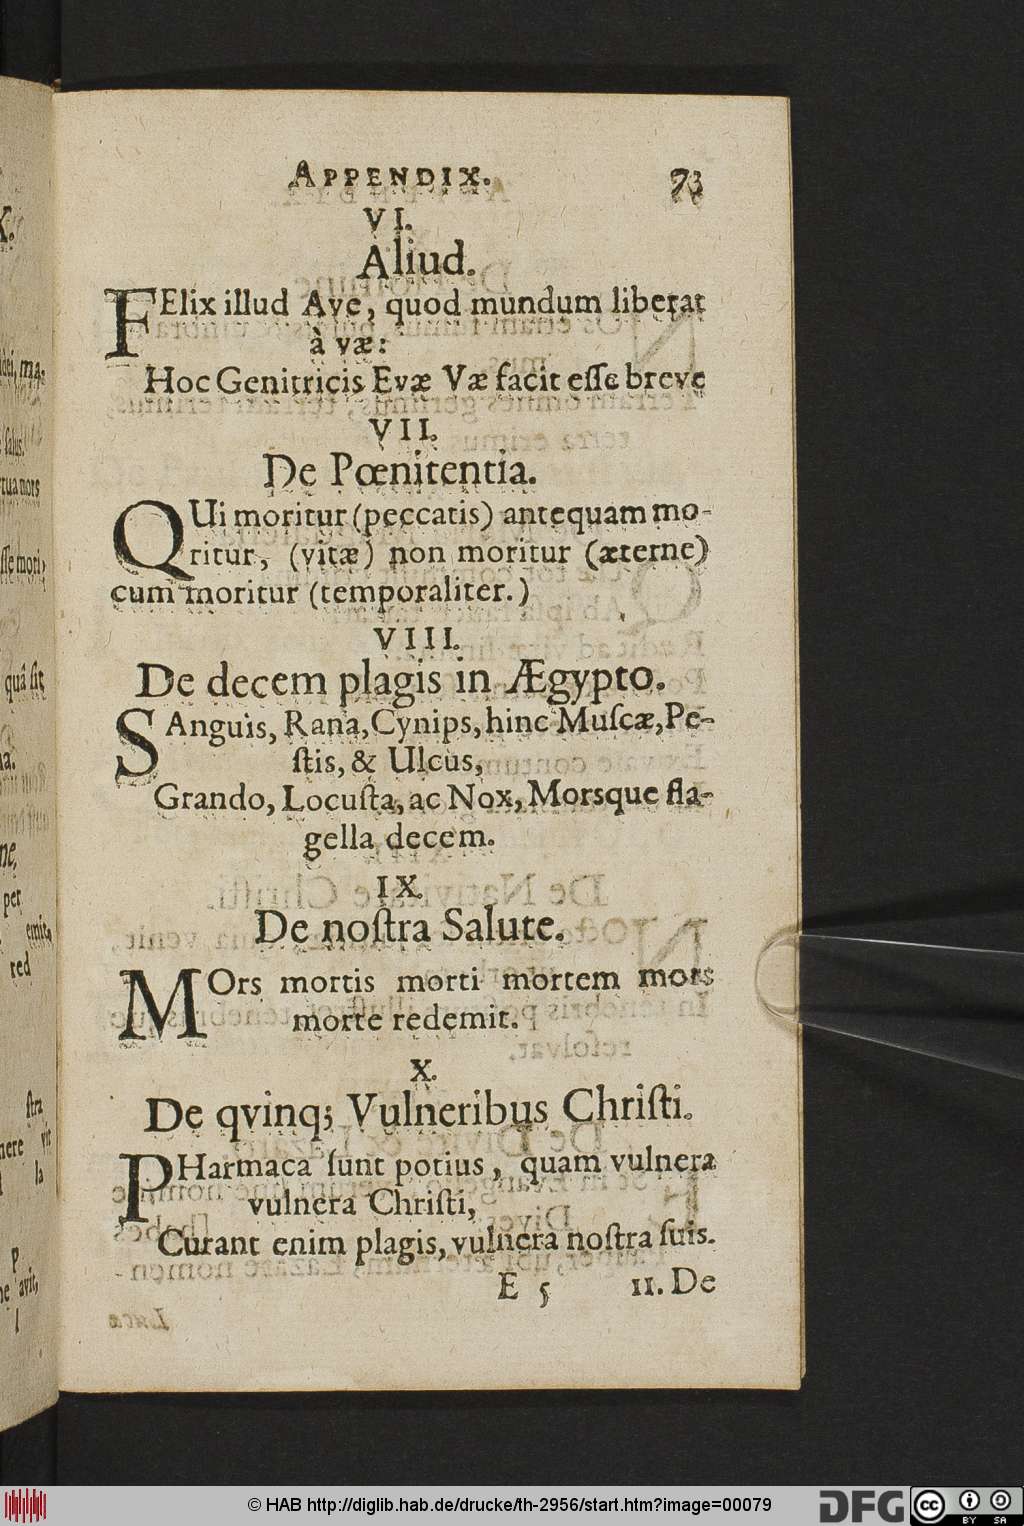 APPENDIX. 73
VI.
Aliud.
FElix illud Ave, quod mundum liberat
à væ:
Hoc Genitricis Evæ Væ facit eſſe breve
VII.
De Pœnitentia.
QUi moritur (peccatis) antequam mo-
ritur, (vitæ) non moritur (æterne)
cum moritur (temporaliter.)
VIII.
De decem plagis in Ægypto.
SAnguis, Rana, Cynips, hinc Muſcæ, Pe-
ſtis, & Ulcus,
Grando, Locuſta, ac Nox, Morsque fla-
gella decem.
IX.
De noſtra Salute.
MOrs mortis morti mortem mors
morte redemit.
X.
De qvinq; Vulneribus Chriſti.
PHarmaca ſunt potius, quam vulnera
vulnera Chriſti,
Curant enim plagis, vulnera noſtra ſuis.
E 5 11. De
© HAB http://diglib.hab.de/drucke/th-2956/start.htm?image=00079
DFG cc BY SA